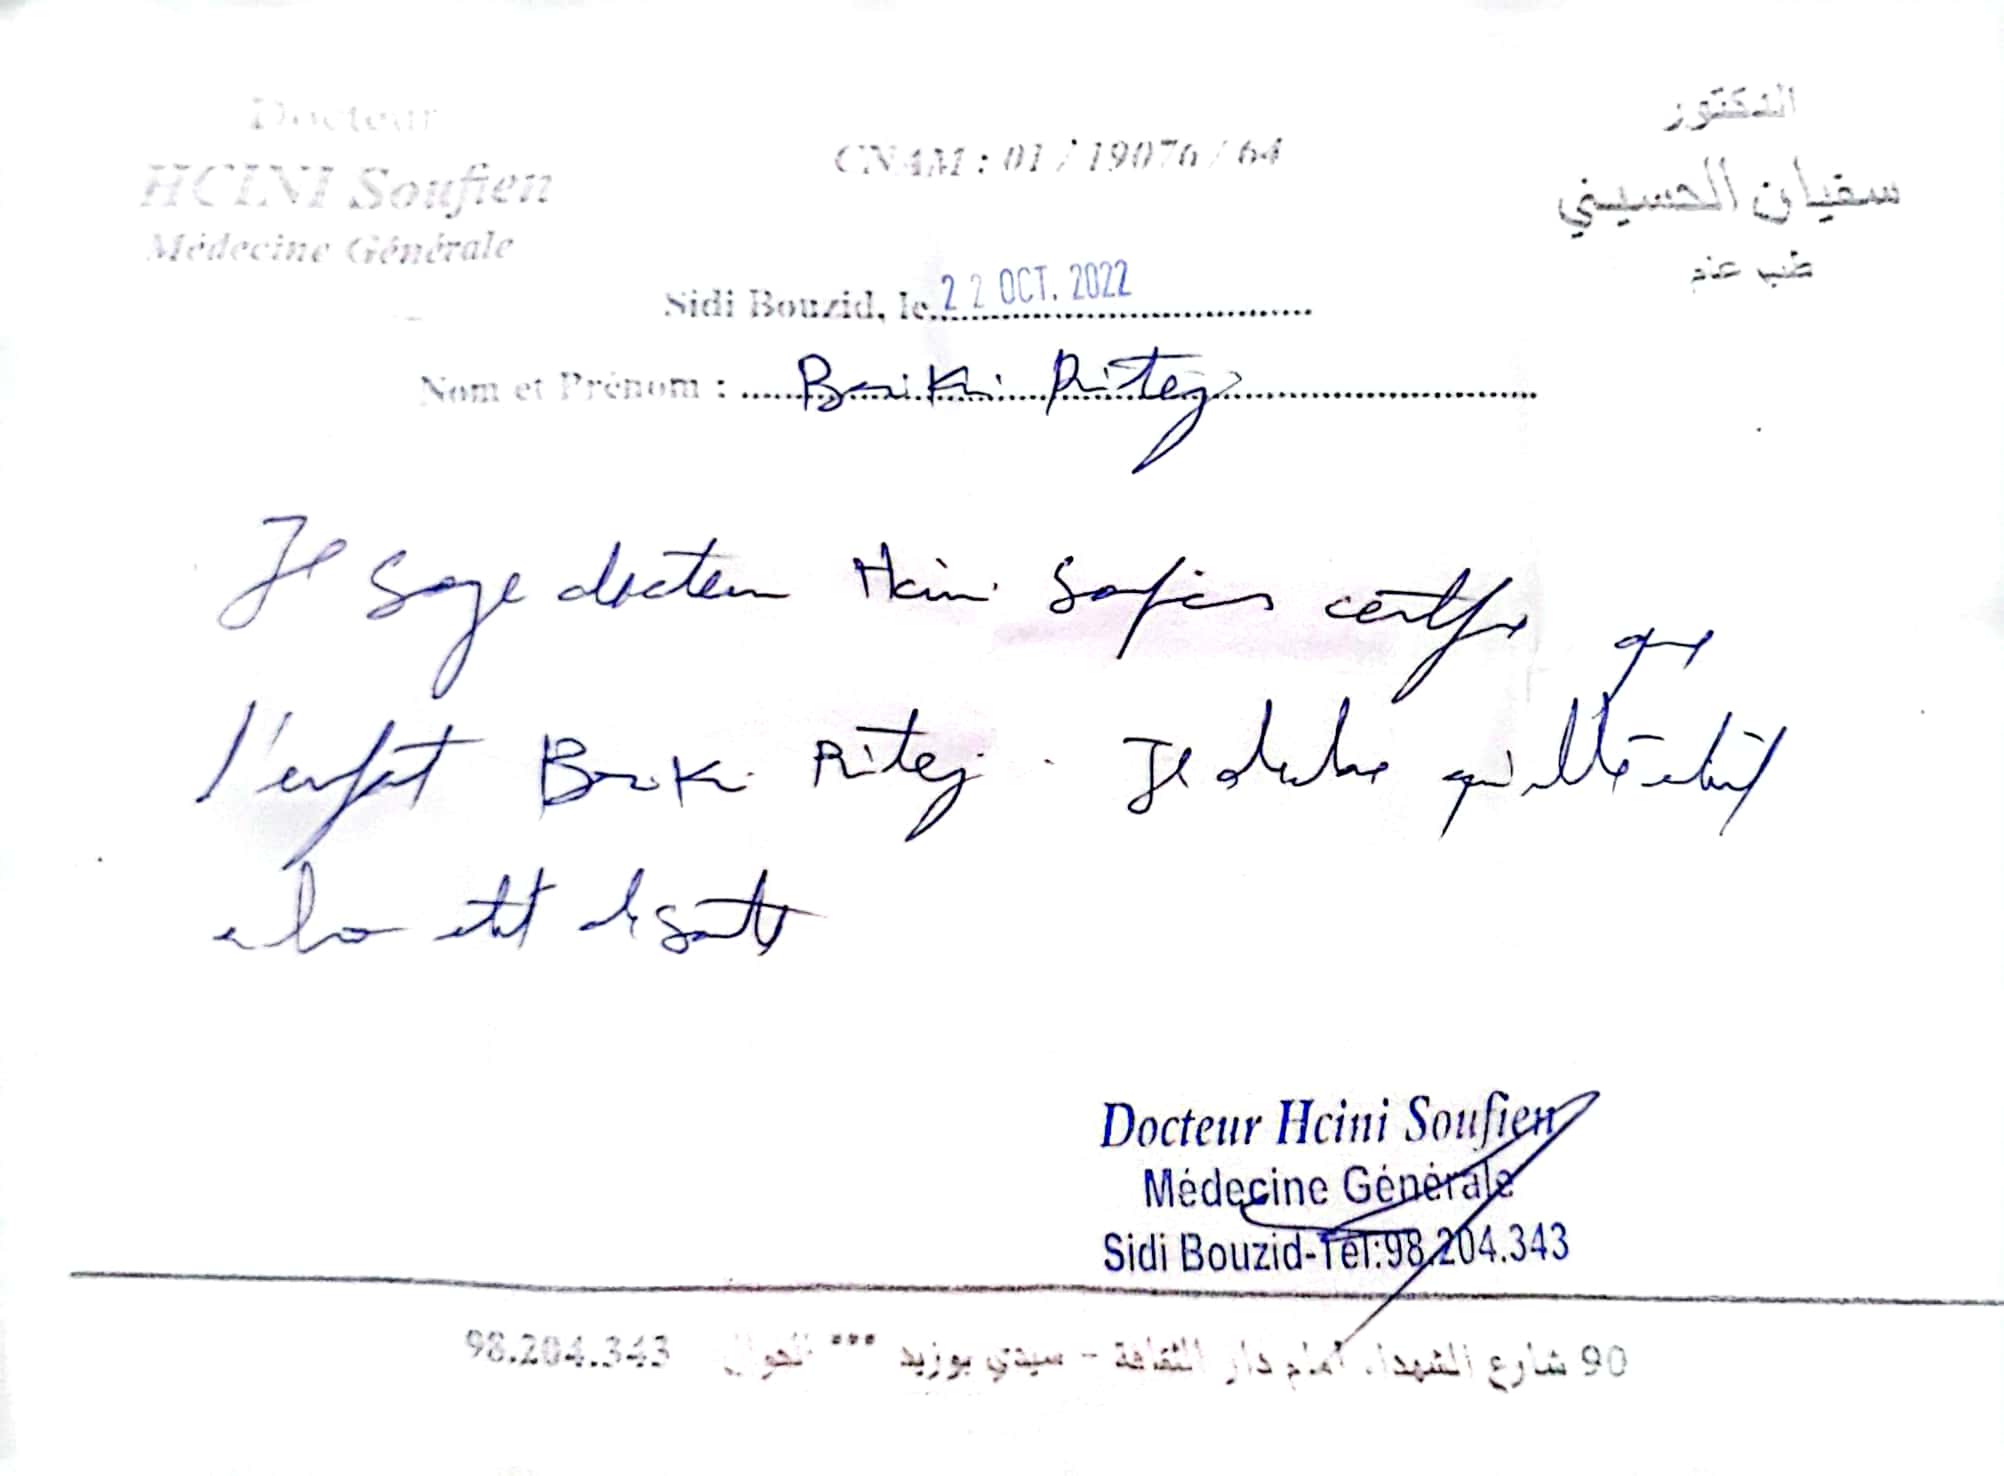 Docteur
HCINI Soufien
Médecine Générale
CNAM : 01 / 19076 / 64
الدكتور
سفيان الحسيني
طب عام
Sidi Bouzid, le 22 OCT. 2022
Nom et Prénom : Briki Ritej
Je docteur Hcini Sofien certifie que
l'enfant Briki Ritej. Je qu'elle
état de santé
Docteur Hcini Soufien
Médecine Générale
Sidi Bouzid-Tel:98.204.343
90 شارع الشهداء. أمام دار الثقافة - سيدي بوزيد *** الجوال 98.204.343